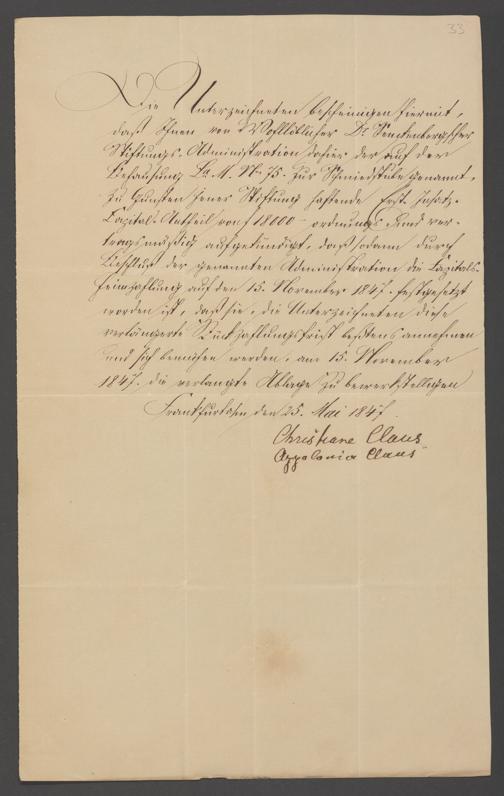 33
Die Unterzeichneten bescheinigen hiermit,
daß Ihnen von Wohllöblicher Dr. Senckenbergischer
Stiftungs-Administration dahier der auf der
Behausung La. M. No. 75. zur Schmiedstube genannt,
zu Gunsten jener Stiftung haftende Erste Insatz-
Capital-Antheil von f 18000 – ordnungs- und ver-
tragsmäßig aufgekündigt, daß sodann durch
Beschluß der genannten Administration die Capitals-
heimzahlung auf den 15. November 1847. festgesetzt
worden ist, daß sie, die Unterzeichneten diese
verlängerte Rückzahlungsfrist bestens annehmen
und sich bemühen werden, am 15. November
1847. die verlangte Ablage zu bewerkstelligen
Frankfurt den 25. Mai 1847.
Christiane Claus
Appolonia Claus